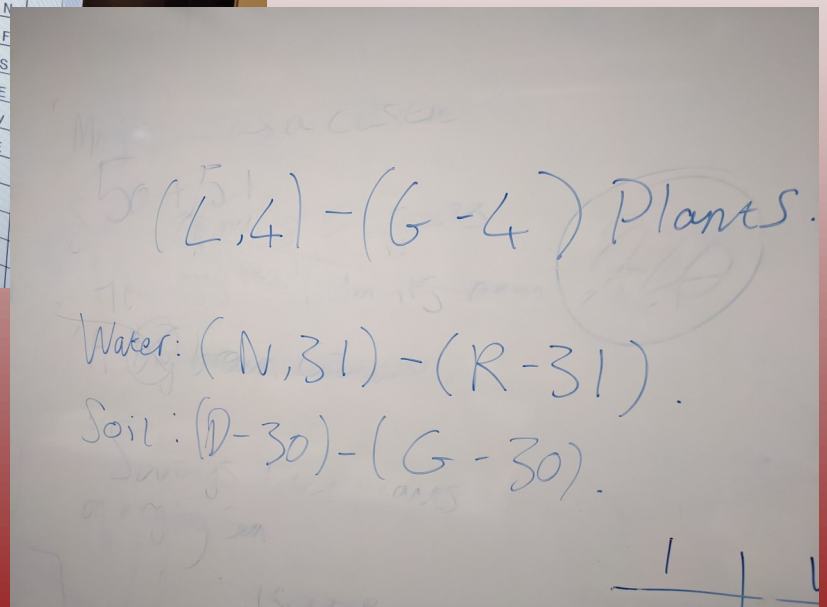 (L,4)-(G-4) Plants.
Water: (N,31)-(R-31).
Soil: (D-30)-(G-30).